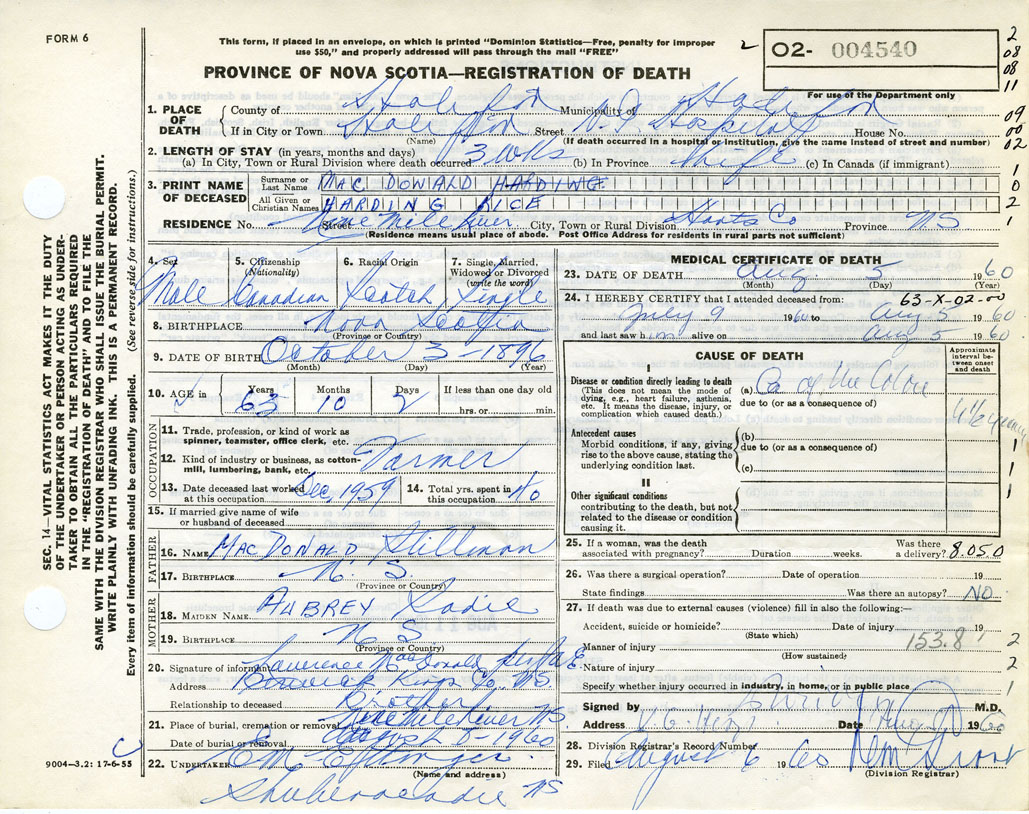 FORM 6
This form, if placed in an envelope, on which is printed "Dominion Statistics—Free, penalty for improper
use $50," and properly addressed will pass through the mail "FREE"
PROVINCE OF NOVA SCOTIA—REGISTRATION OF DEATH
02- 004540
For use of the Department only
2
08
08
11
09
00
02
1
0
2
1
1. PLACE OF DEATH
County of Halifax Municipality of Halifax
If in City or Town Halifax Street V.G. Hospital House No.
(Name) (If death occurred in a hospital or institution, give the name instead of street and number)
2. LENGTH OF STAY (in years, months and days)
(a) In City, Town or Rural Division where death occurred 3 wks (b) In Province Life (c) In Canada (if immigrant)
3. PRINT NAME OF DECEASED
Surname or Last Name MAC DONALD HARDING
All Given or Christian Names HARDING RICE
RESIDENCE No. Nine Mile River Street City, Town or Rural Division Hants Co Province NS
(Residence means usual place of abode. Post Office Address for residents in rural parts not sufficient)
4. Sex Male
5. Citizenship (Nationality) Canadian
6. Racial Origin Scotch
7. Single, Married, Widowed or Divorced (write the word) Single
8. BIRTHPLACE Nova Scotia
(Province or Country)
9. DATE OF BIRTH October 3 - 1896
(Month) (Day) (Year)
10. AGE in Years 63 Months 10 Days 2 If less than one day old
hrs. or min.
OCCUPATION
11. Trade, profession, or kind of work as spinner, teamster, office clerk, etc.
12. Kind of industry or business, as cotton-mill, lumbering, bank, etc. Farmer
13. Date deceased last worked at this occupation Dec, 1959
14. Total yrs. spent in this occupation
15. If married give name of wife or husband of deceased
FATHER
16. NAME MAC DONALD Stillman
17. BIRTHPLACE N. S.
(Province or Country)
MOTHER
18. MAIDEN NAME AUBREY Sadie
19. BIRTHPLACE N S
(Province or Country)
20. Signature of informant Lawrence MacDonald
Address Berwick Kings Co. NS
Relationship to deceased Brother
21. Place of burial, cremation or removal Nine Mile River NS
Date of burial or removal August 7-1960
22. UNDERTAKER
(Name and address)
Shubenacadie NS
MEDICAL CERTIFICATE OF DEATH
23. DATE OF DEATH Aug 5 1960
(Month) (Day) (Year)
24. I HEREBY CERTIFY that I attended deceased from: 63-X-02-00
July 9 1960 to Aug 5 1960
and last saw him alive on Aug 5 1960
CAUSE OF DEATH
Approximate interval between onset and death
I
Disease or condition directly leading to death
(This does not mean the mode of dying, e.g., heart failure, asthenia, etc. It means the disease, injury, or complication which caused death.)
(a) Ca of the Colon
due to (or as a consequence of)
Antecedent causes
Morbid conditions, if any, giving rise to the above cause, stating the underlying condition last.
(b)
due to (or as a consequence of)
(c)
II
Other significant conditions
contributing to the death, but not related to the disease or condition causing it.
1
1
1
25. If a woman, was the death associated with pregnancy? Duration weeks. Was there a delivery? 8.050
26. Was there a surgical operation? Date of operation 19
State findings Was there an autopsy? NO
27. If death was due to external causes (violence) fill in also the following:—
Accident, suicide or homicide? Date of injury 19
(State which)
Manner of injury 153.8
(How sustained)
Nature of injury
Specify whether injury occurred in industry, in home, or in public place
1
2
2
1
Signed by M.D.
Address V.G. Hosp Date 1960
28. Division Registrar's Record Number
29. Filed August 6 1960
(Division Registrar)
SEC. 14—VITAL STATISTICS ACT MAKES IT THE DUTY
OF THE UNDERTAKER OR PERSON ACTING AS UNDER-
TAKER TO OBTAIN ALL THE PARTICULARS REQUIRED
IN THE "REGISTRATION OF DEATH" AND TO FILE THE
SAME WITH THE DIVISION REGISTRAR WHO SHALL ISSUE THE BURIAL PERMIT.
WRITE PLAINLY WITH UNFADING INK. THIS IS A PERMANENT RECORD.
Every item of information should be carefully supplied. (See reverse side for instructions.)
9004—3.2: 17-6-55